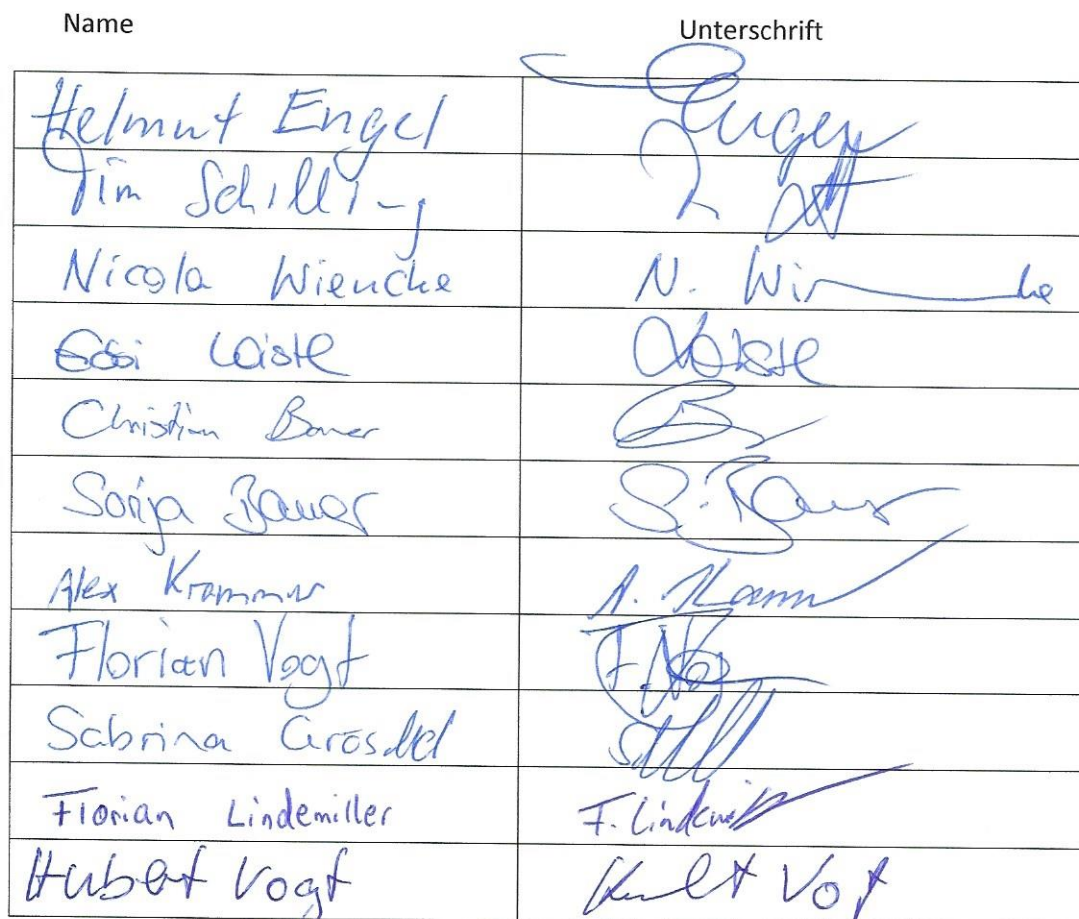 Name Unterschrift
Helmut Engel Engel
Tim Schilling
Nicola Wiencke N. Wi
Leistl Leistl
Christian Bauer B
Sonja Bauer S. Bauer
Alex Krammer A. Kramm
Florian Vogt F. Vog
Sabrina
Florian Lindemiller F. Lindemill
Hubert Vogt Vogt